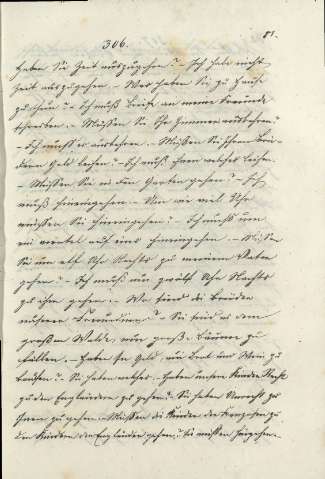 306.
81.
Haben Sie Zeit auszugehen? - Ich habe nicht
Zeit auszugehen. - Was haben Sie zu Hause
zu thun? - Ich muß Briefe an meine Freunde
schreiben. - Müssen Sie Ihr Zimmer auskehren?
- Ich muß es auskehren. - Müssen Sie Ihren Brü-
dern Geld leihen? - Ich muß ihnen welches leihen.
- Müssen Sie in den Garten gehen? - Ich
muß hineingehen. - Um wie viel Uhr
müssen Sie hineingehen? - Ich muß um
ein viertel auf eins hineingehen. - Müssen
Sie um elf Uhr Nachts zu meinem Vater
gehen? - Ich muß um zwölf Uhr Nachts
zu ihm gehen. - Wo sind die Brüder
unserer Freundinn? - Sie sind in dem
großen Walde, um große Bäume zu
fällen. - Haben Sie Geld, um Brot und Wein zu
kaufen? - Sie haben welches. - Haben unsere Kinder Recht
zu den Engländern zu gehen? - Sie haben Unrecht zu
ihnen zu gehen. - Müssen die Kinder der Franzosen zu
den Kindern der Engländer gehen? - Sie müssen hingehen. -